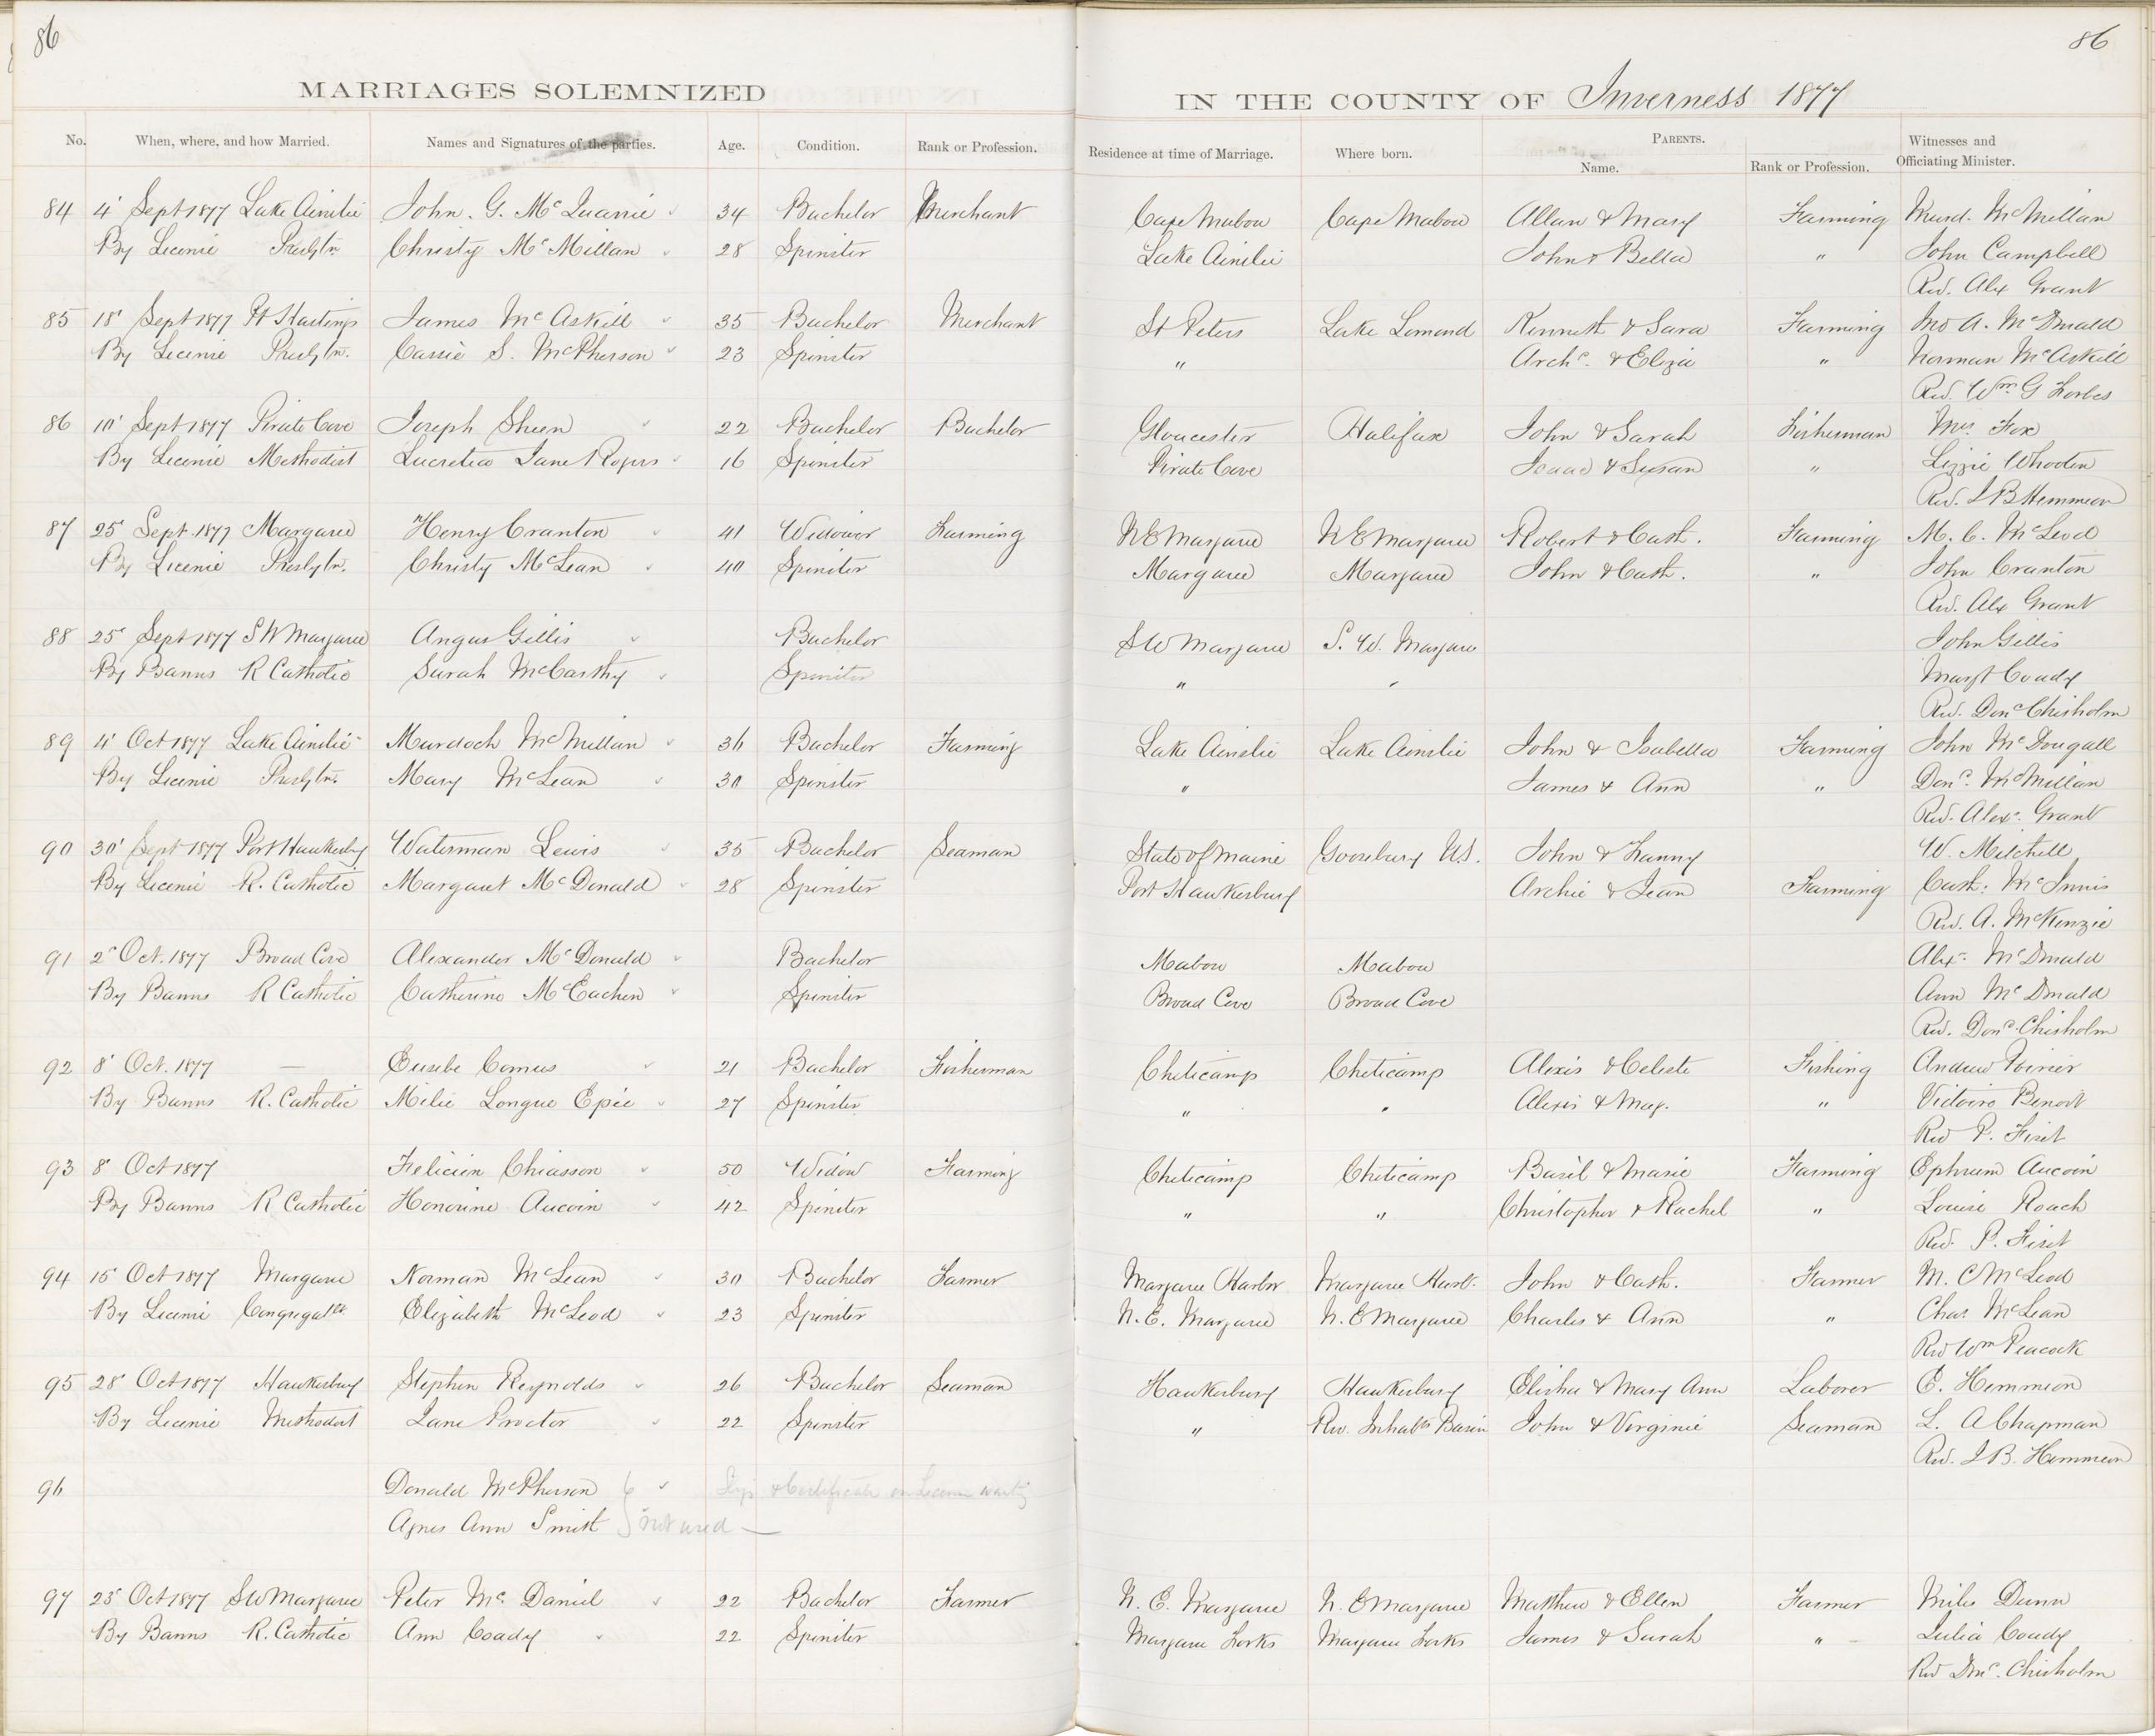 86
86
MARRIAGES SOLEMNIZED IN THE COUNTY OF Inverness 1877
No. When, where, and how Married. Names and Signatures of the parties. Age. Condition. Rank or Profession. Residence at time of Marriage. Where born. PARENTS. Name. Rank or Profession. Witnesses and Officiating Minister.
84 4' Sept 1877 Lake Ainslie John. G. McQuarrie 34 Bachelor Merchant Cape Mabou Cape Mabou Allan & Mary Farming Murd. McMillan
By License Presbytn. Christy McMillan 28 Spinster Lake Ainslie John & Bella " John Campbell
Rev. Alex Grant
85 18' Sept 1877 Pt Hastings James McAskill 35 Bachelor Merchant St Peters Lake Lomond Kenneth & Sara Farming Jno A. McDonald
By License Presbytn. Cassie S. McPherson 23 Spinster " Archd. & Eliza " Norman McAskill
Rev. Wm G Forbes
86 10' Sept 1877 Pirate Cove Joseph Sheen 22 Bachelor Bachelor Gloucester Halifax John & Sarah Fisherman Mrs. Fox
By License Methodist Lucretia Jane Rogers 16 Spinster Pirate Cove Isaac & Susan " Lizzie Whooten
Rev. J B Hemmeon
87 25' Sept 1877 Margaree Henry Cranton 41 Widower Farming N E Margaree N E Margaree Robert & Cath. Farming M. C. McLeod
By License Presbytn. Christy McLean 40 Spinster Margaree Margaree John & Cath. " John Cranton
Rev. Alex Grant
88 25' Sept 1877 S W Margaree Angus Gillis Bachelor S W Margaree S. W. Margaree John Gillis
By Banns R Catholic Sarah McCarthy Spinster " " Margt Coady
Rev. Dond Chisholm
89 4' Oct 1877 Lake Ainslie Murdoch McMillan 36 Bachelor Farming Lake Ainslie Lake Ainslie John & Isabella Farming John McDougall
By License Presbytn. Mary McLean 30 Spinster " James & Ann " Dond. McMillan
Rev. Alexr. Grant
90 30' Sept 1877 Port Hawkesbury Waterman Lewis 35 Bachelor Seaman State of Maine Goosebury U.S. John & Fanny W. Mitchell
By License R. Catholic Margaret McDonald 28 Spinster Port Hawkesbury Archie & Jean Farming Cath: McInnis
Rev. A. McKenzie
91 2' Oct. 1877 Broad Cove Alexander McDonald Bachelor Mabou Mabou Alexr. McDonald
By Banns R Catholic Catherine McEachen Spinster Broad Cove Broad Cove Ann McDonald
Rev. Dond. Chisholm
92 8' Oct. 1877 — Eusebe Comus 21 Bachelor Fisherman Cheticamp Cheticamp Alexis & Celeste Fishing Andrew Poirier
By Banns R. Catholic Milie Longue Epée 27 Spinster " " Alexis & Mag. " Victoire Benoit
Rev P. Fiset
93 8' Oct 1877 Felicien Chiasson 50 Widow Farming Cheticamp Cheticamp Basil & Marie Farming Ephrem Aucoin
By Banns R Catholic Honorine Aucoin 42 Spinster " " Christopher & Rachel " Louise Roach
Rev. P. Fiset
94 15' Oct 1877 Margaree Norman McLean 30 Bachelor Farmer Margaree Harbor Margaree Harb. John & Cath. Farmer M. C McLeod
By License Congregatl. Elizabeth McLeod 23 Spinster N. E. Margaree N. E Margaree Charles & Ann " Chas McLean
Rev Wm Peacock
95 28' Oct 1877 Hawkesbury Stephen Reynolds 26 Bachelor Seaman Hawkesbury Hawkesbury Elisha & Mary Ann Laborer E. Hemmeon
By License Methodist Jane Proctor 22 Spinster " Riv. Inhabts Basin John & Virginie Seaman L. A Chapman
Rev. J B. Hemmeon
96 Donald McPherson Slip & Certificate on License wanting
Agnes Ann Smith not used —
97 23' Oct 1877 S W Margaree Peter McDaniel 22 Bachelor Farmer N. E. Margaree N. E Margaree Matthew & Ellen Farmer Miles Dunn
By Banns R. Catholic Ann Coady 22 Spinster Margaree Forks Margaree Forks James & Sarah " Julia Coady
Rev Dond. Chisholm